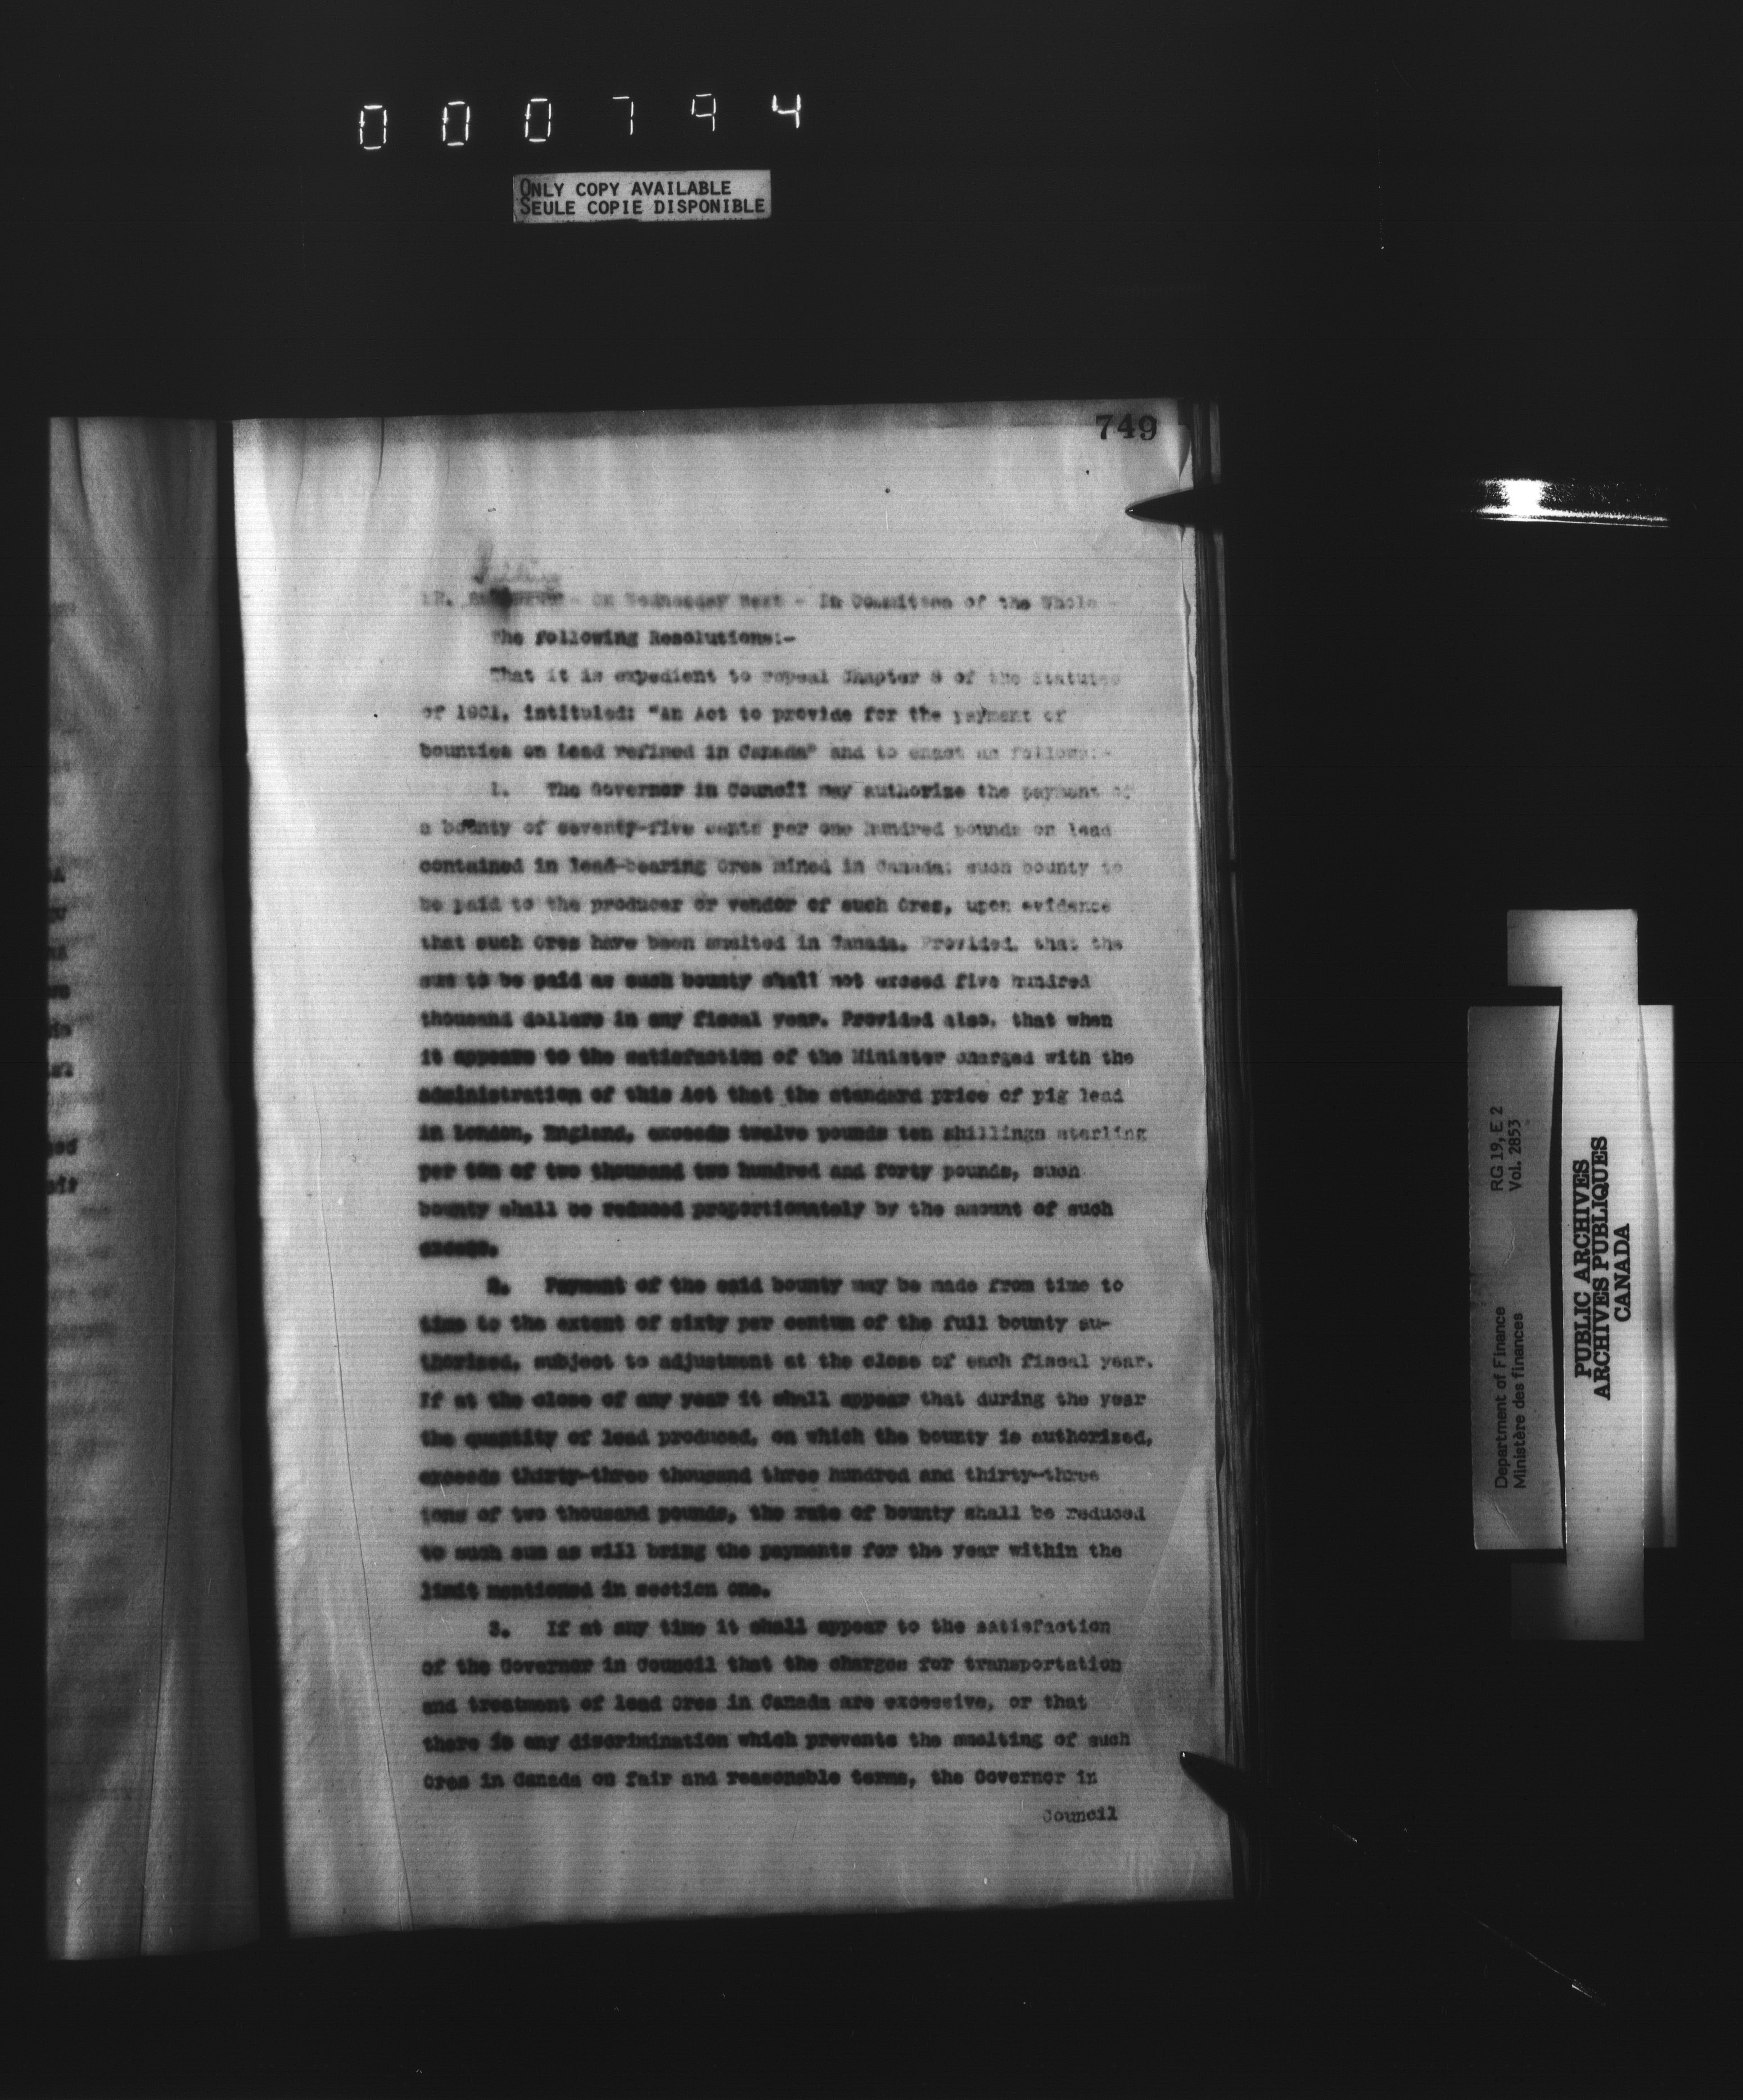 000794
ONLY COPY AVAILABLE
SEULE COPIE DISPONIBLE
749
On Wednesday Next - In Committee of the Whole -
The following Resolutions:-
That it is expedient to repeal Chapter 8 of the Statutes
of 1901, intituled: "An Act to provide for the payment of
bounties on Lead refined in Canada" and to enact as follows:-
1. The Governor in Council may authorize the payment of
a bounty of seventy-five cents per one hundred pounds on lead
contained in lead-bearing Ores mined in Canada; such bounty to
be paid to the producer or vendor of such Ores, upon evidence
that such Ores have been smelted in Canada. Provided, that the
sum to be paid as such bounty shall not exceed five hundred
thousand dollars in any fiscal year. Provided also, that when
it appears to the satisfaction of the Minister charged with the
administration of this Act that the standard price of pig lead
in London, England, exceeds twelve pounds ten shillings sterling
per ton of two thousand two hundred and forty pounds, such
bounty shall be reduced proportionately by the amount of such
excess.
2. Payment of the said bounty may be made from time to
time to the extent of sixty per centum of the full bounty au-
thorized, subject to adjustment at the close of each fiscal year.
If at the close of any year it shall appear that during the year
the quantity of lead produced, on which the bounty is authorized,
exceeds thirty-three thousand three hundred and thirty-three
tons of two thousand pounds, the rate of bounty shall be reduced
to such sum as will bring the payments for the year within the
limit mentioned in section one.
3. If at any time it shall appear to the satisfaction
of the Governor in Council that the charges for transportation
and treatment of lead Ores in Canada are excessive, or that
there is any discrimination which prevents the smelting of such
Ores in Canada on fair and reasonable terms, the Governor in
Council
Department of Finance RG 19, E 2
Ministère des finances Vol. 2853
PUBLIC ARCHIVES
ARCHIVES PUBLIQUES
CANADA